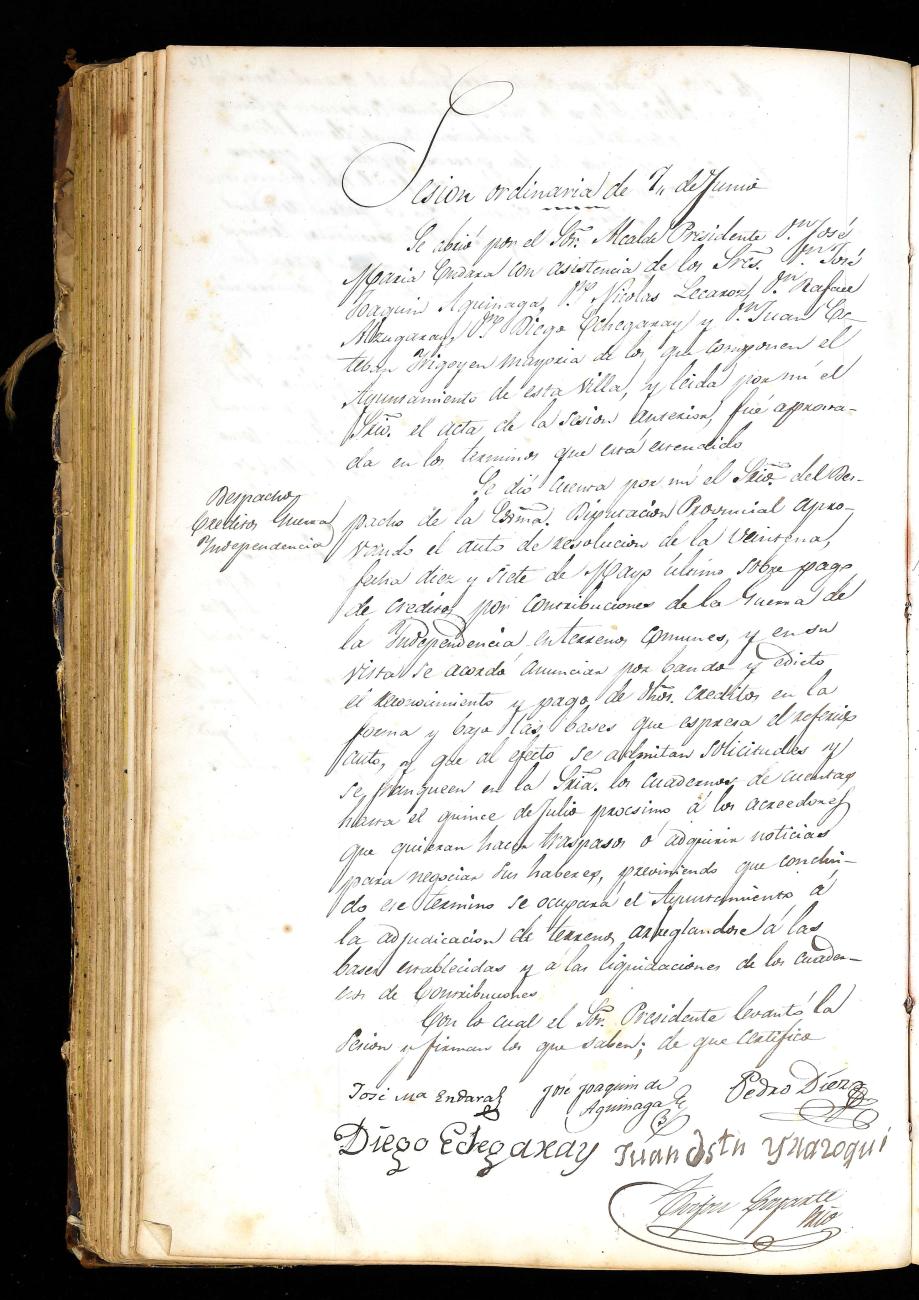 Sesion ordinaria de 7,, de Junio
Se abrió por el Sor. Alcalde Presidente Dn. José
Maria Endara con asistencia de los Sres. Dn. José
Joaquin Aguinaga, Dn. Nicolas Lecaroz, Dn. Rafael
Alzugaray, Dn. Diego Echegaray y Dn. Juan Es-
teban Yrigoyen mayoria de los que componen el
Ayuntamiento de esta villa, y leida por mi el
Srio. el acta de la sesion anterior, fué aprova-
da en los terminos que está estendido
Se dió cuenta por mi el Srio del Des-
pacho de la Exma. Diputacion Provincial apro-
vando el auto de resolucion de la Veintena,
fecha diez y siete de Mayo último sobre pago
de creditos por contribuciones de la Guerra de
la Independencia en terrenos comunes, y en su
vista se acordó anunciar por bando y edicto
el reconocimiento y pago de dhos. creditos en la
forma y bajo las bases que espresa el referido
auto, y que al efecto se admitan solicitudes y
se franqueen en la Sria. los cuadernos de cuentas
hasta el quince de Julio procsimo á los acreedores
que quieran hacer traspasos ó adquirir noticias
para negociar sus haberes, previniendo que conclui-
do ese termino se ocupará el Ayuntamiento á
la adjudicacion de terrenos arreglandose á las
bases establecidas y á las liquidaciones de los cuader-
nos de Contribuciones
Con lo cual el Sor. Presidente levantó la
sesion y firman los que saben; de que certifico
Despacho
Creditos Guerra
Independencia
José Ma Endara
José Joaquin de
Aguinaga
Pedro Díez
Diego Echegaray
Juan Estn
Srio